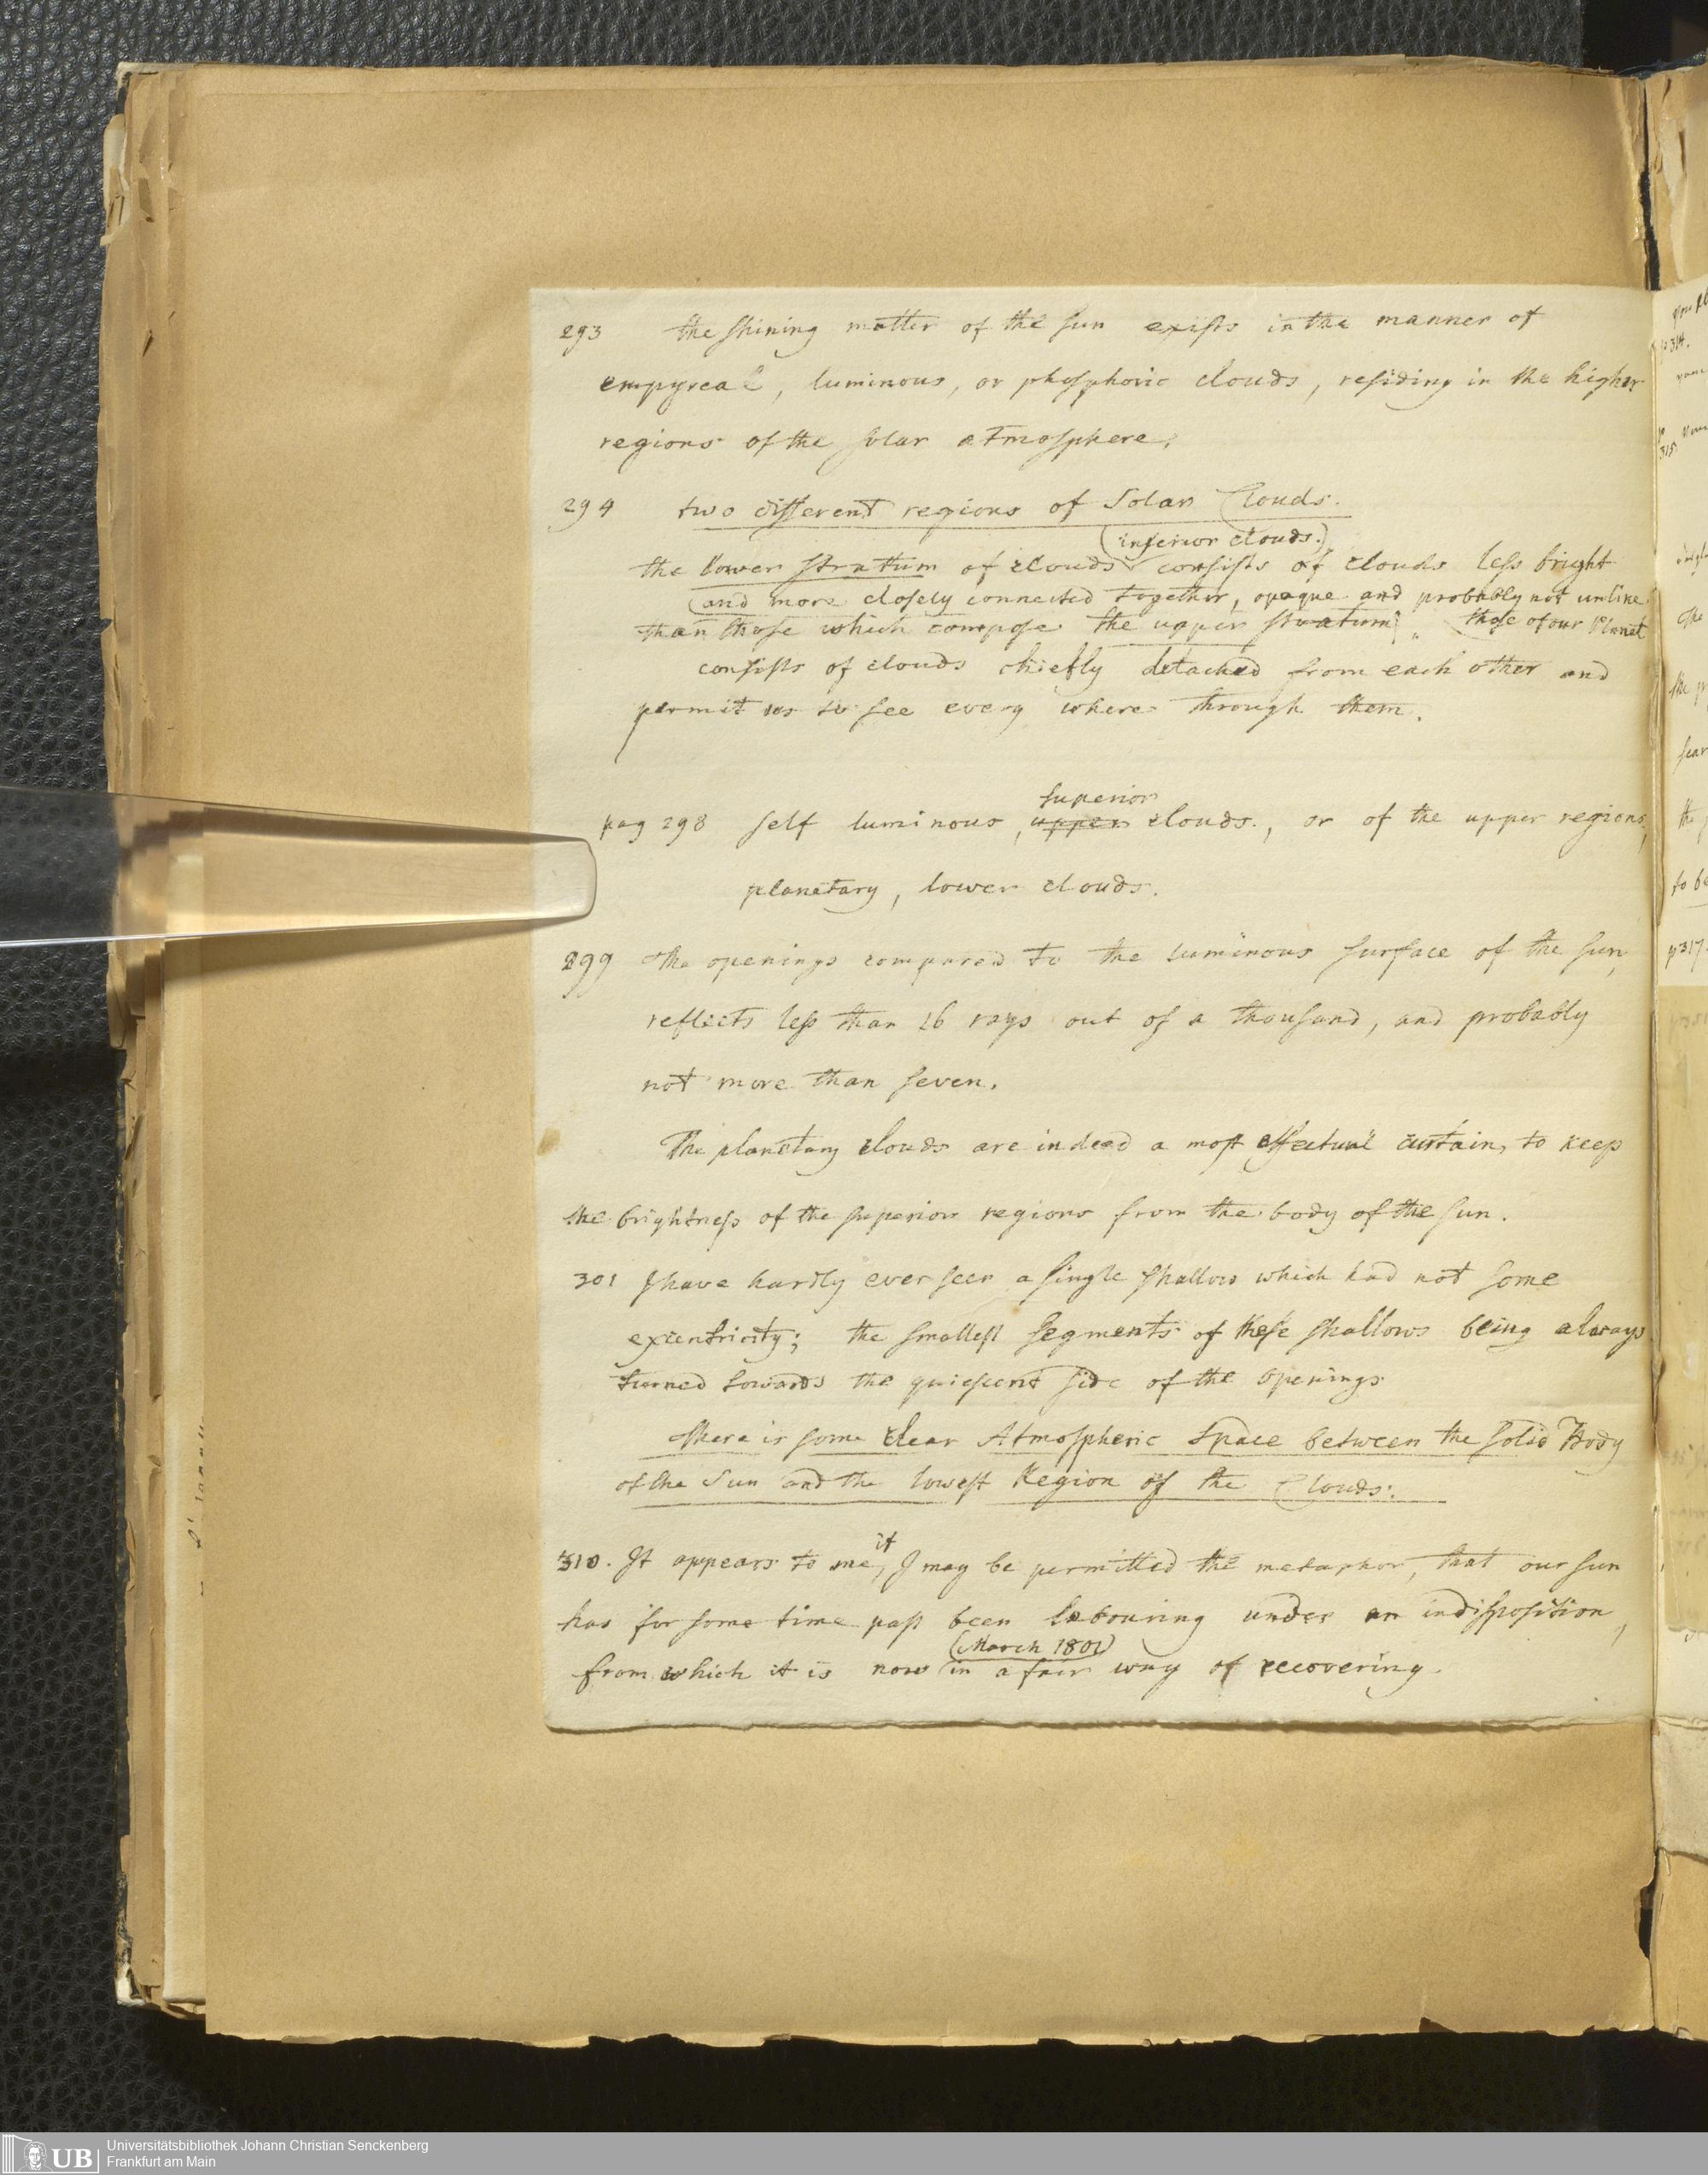 293 the shining matter of the sun exists in the manner of
empyreal, luminous, or phosphoric clouds, residing in the higher
regions of the solar atmosphere.
294 two different regions of Solar Clouds.
(inferior clouds.)
the lower stratum of clouds consists of clouds less bright
(and more closely connected together, opaque and probably not unlike
than those which compose the upper stratum, those of our Planet
consists of clouds chiefly detached from each other and
permit us to see every where through them.
superior
pag 298 self luminous, upper clouds., or of the upper regions,
planetary, lower clouds.
299 the openings compared to the luminous surface of the sun,
reflects less than 16 rays out of a thousand, and probably
not more than seven.
The planetary clouds are indeed a most effectual curtain, to keep
the brightness of the superior regions from the body of the sun.
301 I have hardly ever seen a single shallow which had not some
excentricity; the smallest segments of these shallows being always
turned towards the quiescent side of the openings
there is some clear Atmospheric Space between the solid Body
of the Sun and the lowest Region of the Clouds.
if
310. It appears to me, I may be permitted the metaphor, that our sun
has for some time past been labouring under an indisposition,
(March 1801)
from which it is now in a fair way of recovering.
p 314.
p 315
the
to be
p 317.
UB
Universitätsbibliothek Johann Christian Senckenberg
Frankfurt am Main